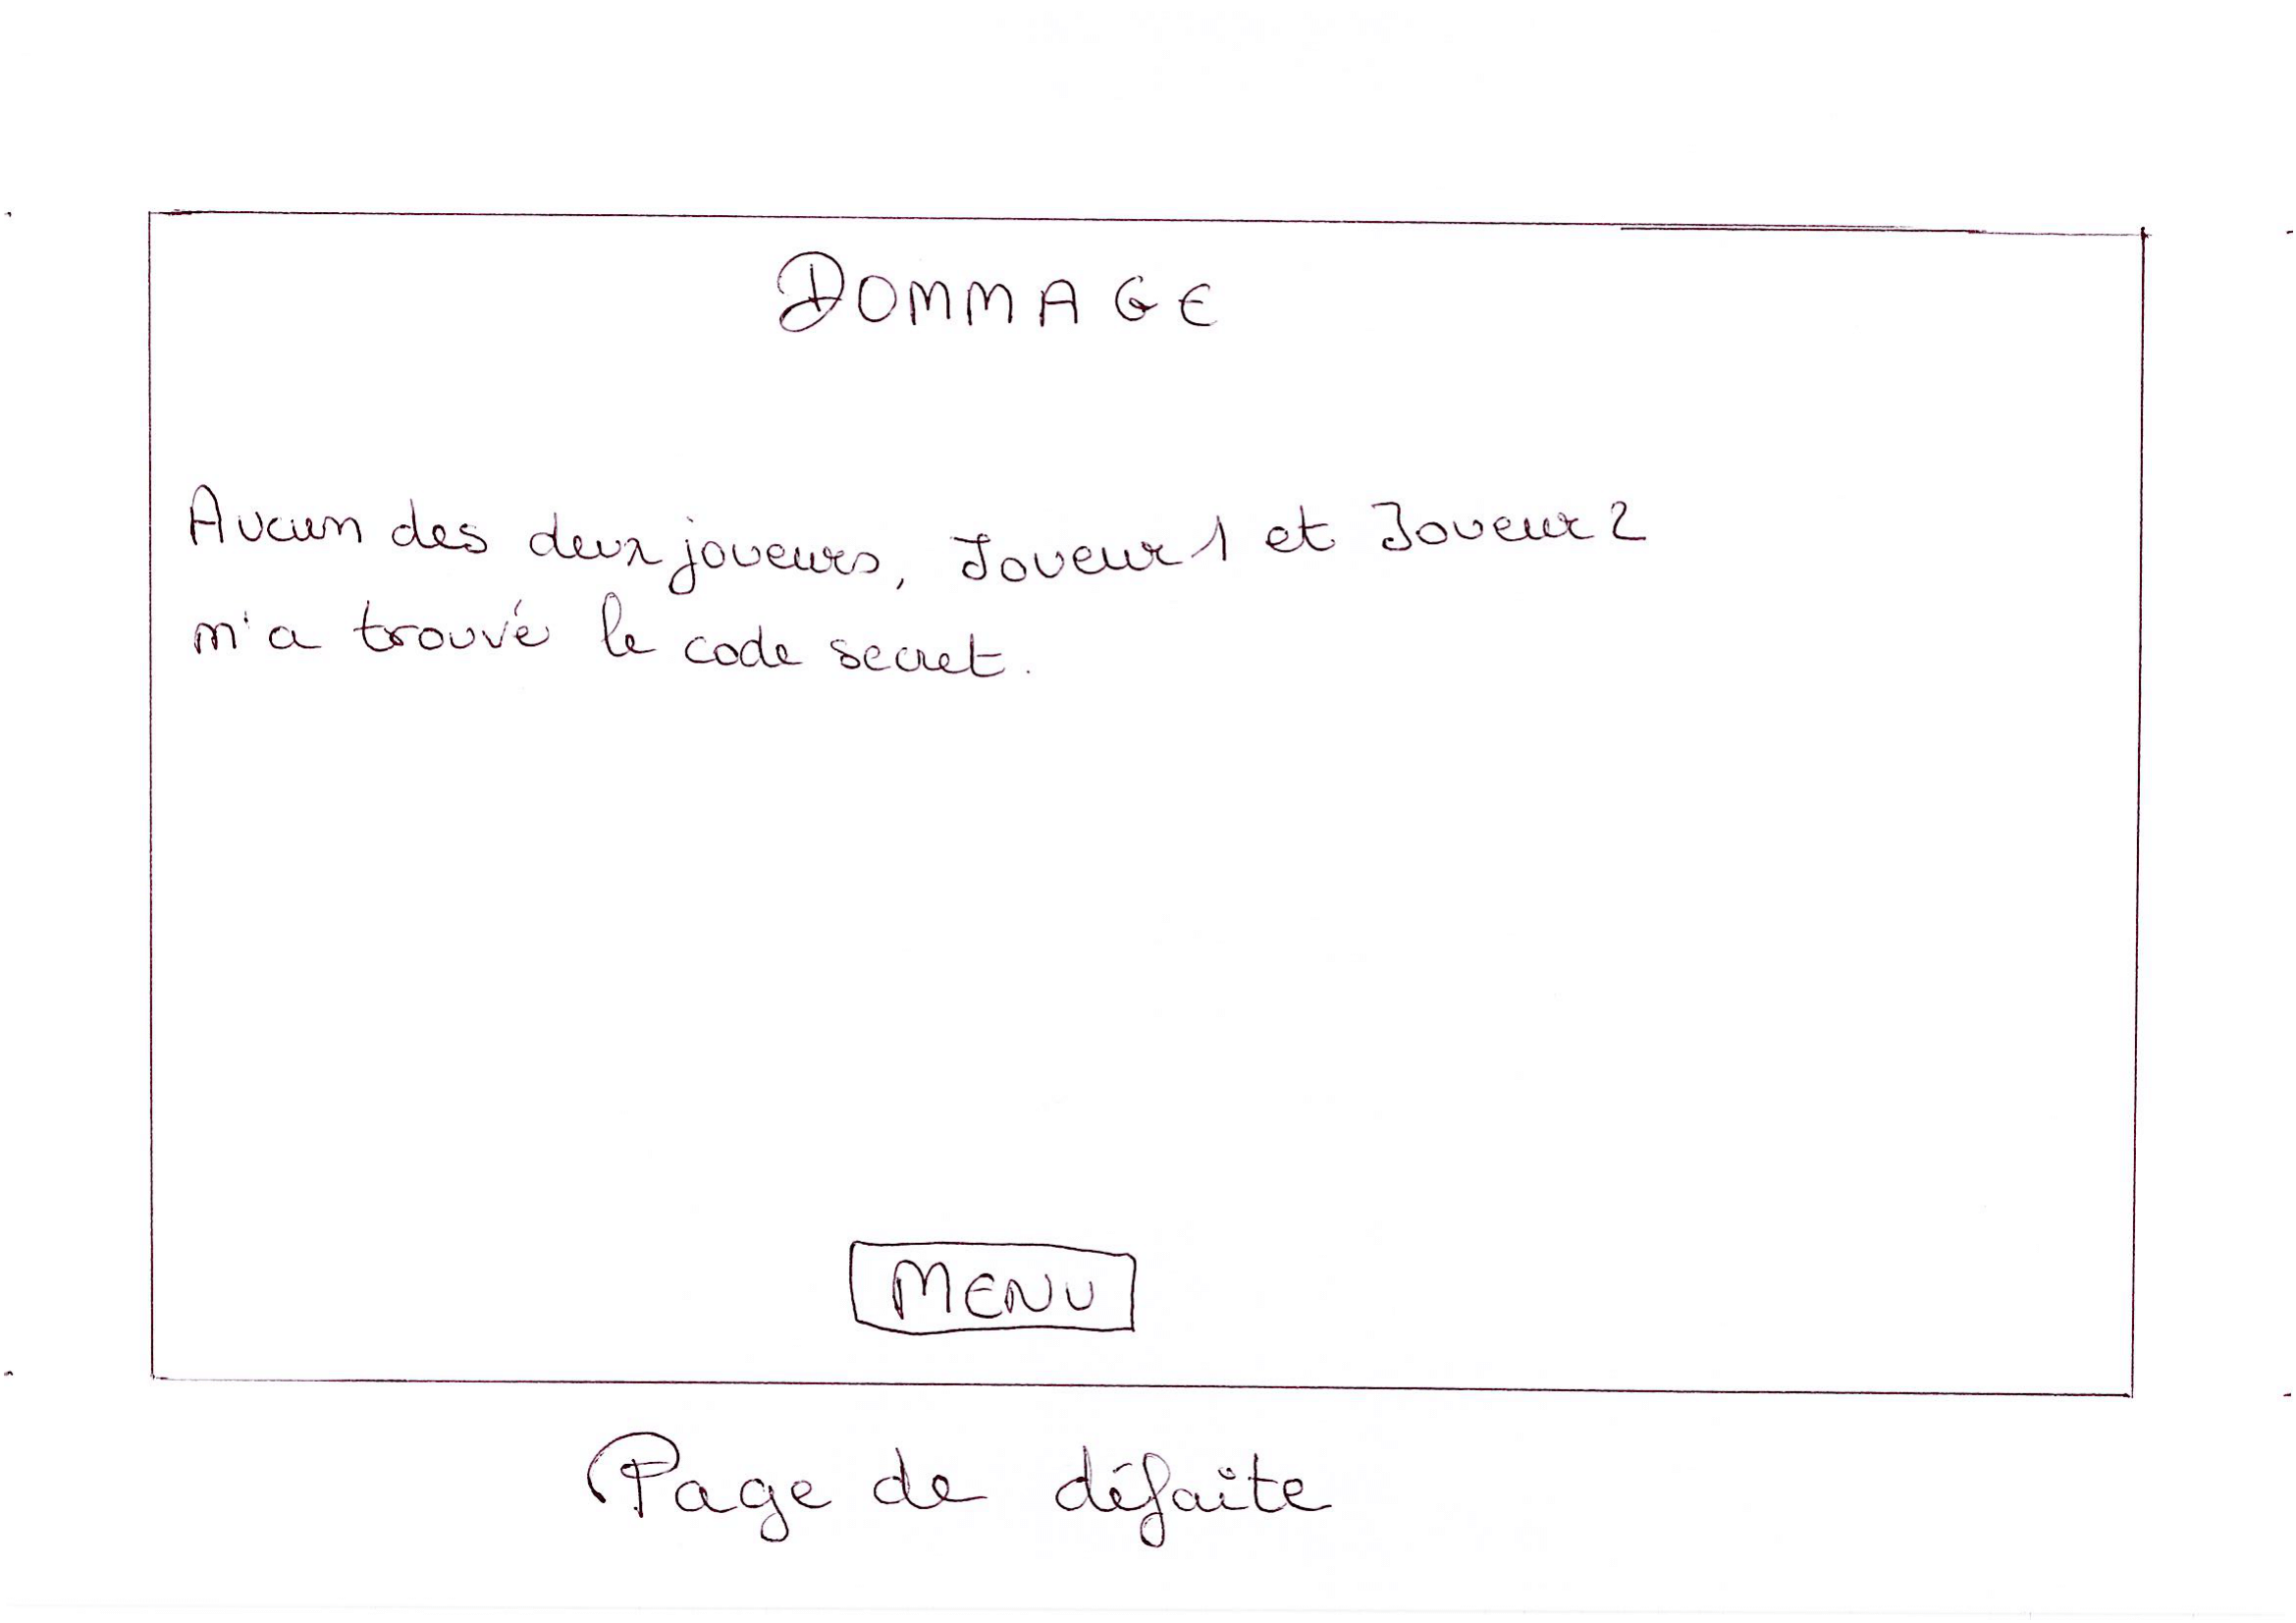 DOMMAGE
Aucun des deux joueurs, Joueur 1 et Joueur 2
n'a trouvé le code secret.
MENU
Page de défaite